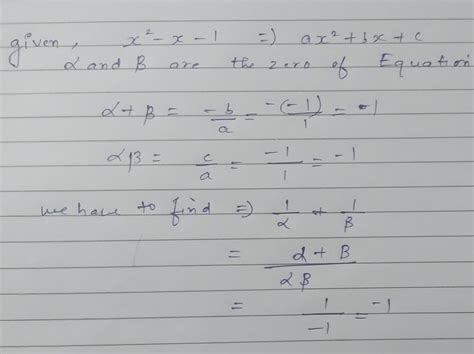 given, x² - x - 1 ⇒ ax² + bx + c
α and β are the zero of Equation
α + β = -b/a = -(-1)/1 = -1
αβ = c/a = -1/1 = -1
we have to find ⇒ 1/α + 1/β
= α + β / αβ
= 1/-1 = -1